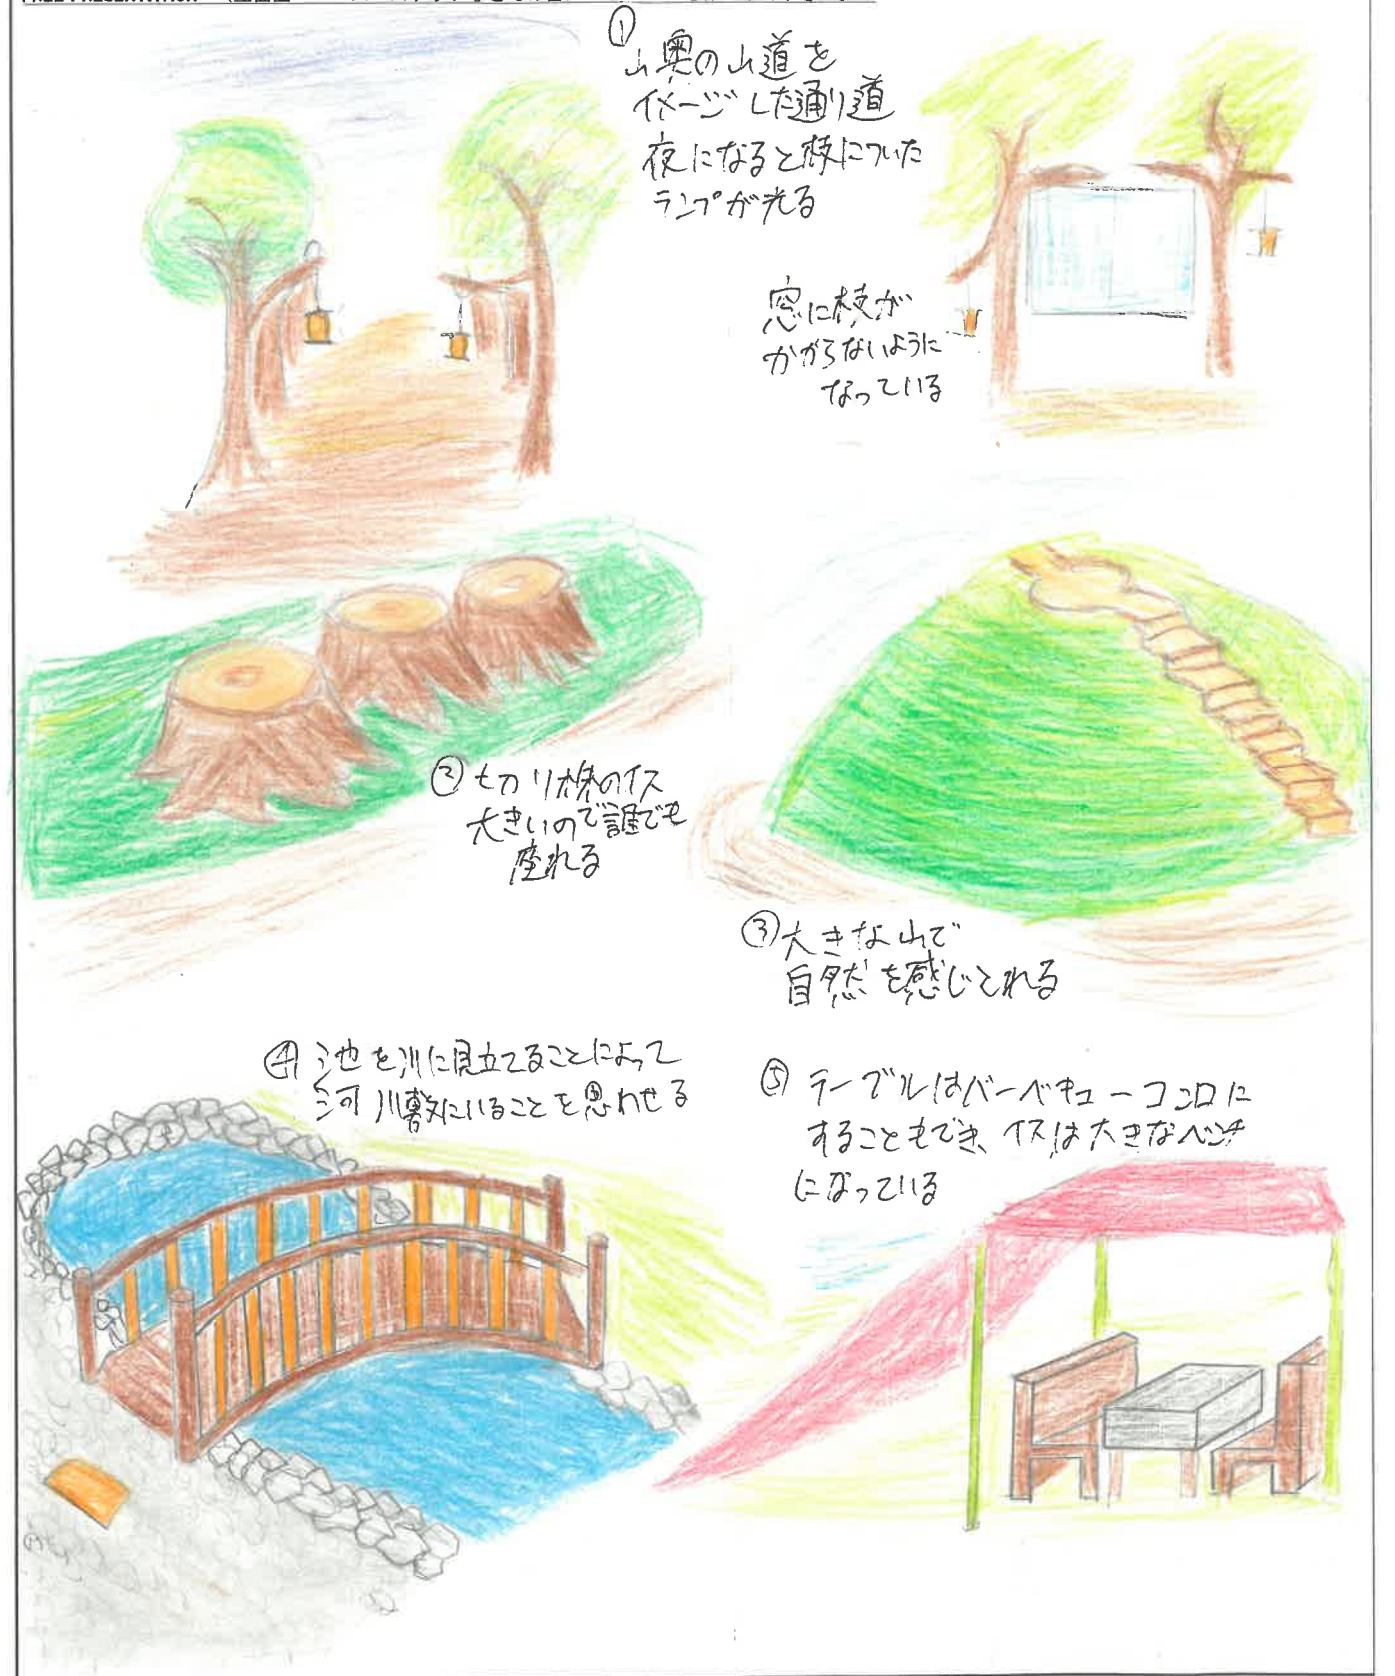 ①
山奥の山道を
イメージした通り道
夜になると枝についた
ランプが光る
窓に枝が
かからないように
なっている
②切り株のイス
大きいので誰でも
座れる
③大きな山で
自然を感じとれる
④ 池を川に見立てることによって
河川敷にいることを思わせる
⑤ テーブルはバーベキューコンロに
することもでき、イスは大きなベンチ
になっている